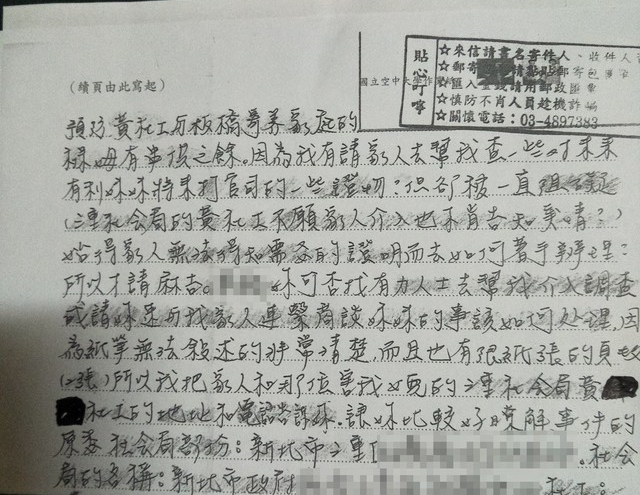 (續頁由此寫起)
國立空中大學作業紙
貼心叮嚀
☆來信請書名寄件人、收件人
☆郵寄 請黏貼郵寄包裹單
☆匯入金錢請用郵政匯票
☆慎防不肖人員趁機詐騙
☆關懷電話:03-4897383
預防黃社工与板橋寄养家庭的
褓母有串 之餘。因為我有請家人去幫我查一些对未來
有利妹妹將來打官司的一些證物?但卻被一直阻礙
(三重社会局的黃社工不願家人介入也不肖告知实情?)
始得家人無法得知需要的證明而去如何著手辦理?
所以才請麻吉。 妹可否找有力人士去幫我介入調查
或請妹廷与我家人連繫商談妹妹的事該如何处理,因
為紙筆無法敍述的非常清楚,而且也有限紙張的頁
(2張)所以我把家人和那位害我女兒的三重社会局黃
社工的地址和電話告訴妹.讓妹比較好瞭解事件的
原委 社会局部份:新北市三重 社会
局的名稱:新北市政府 社工